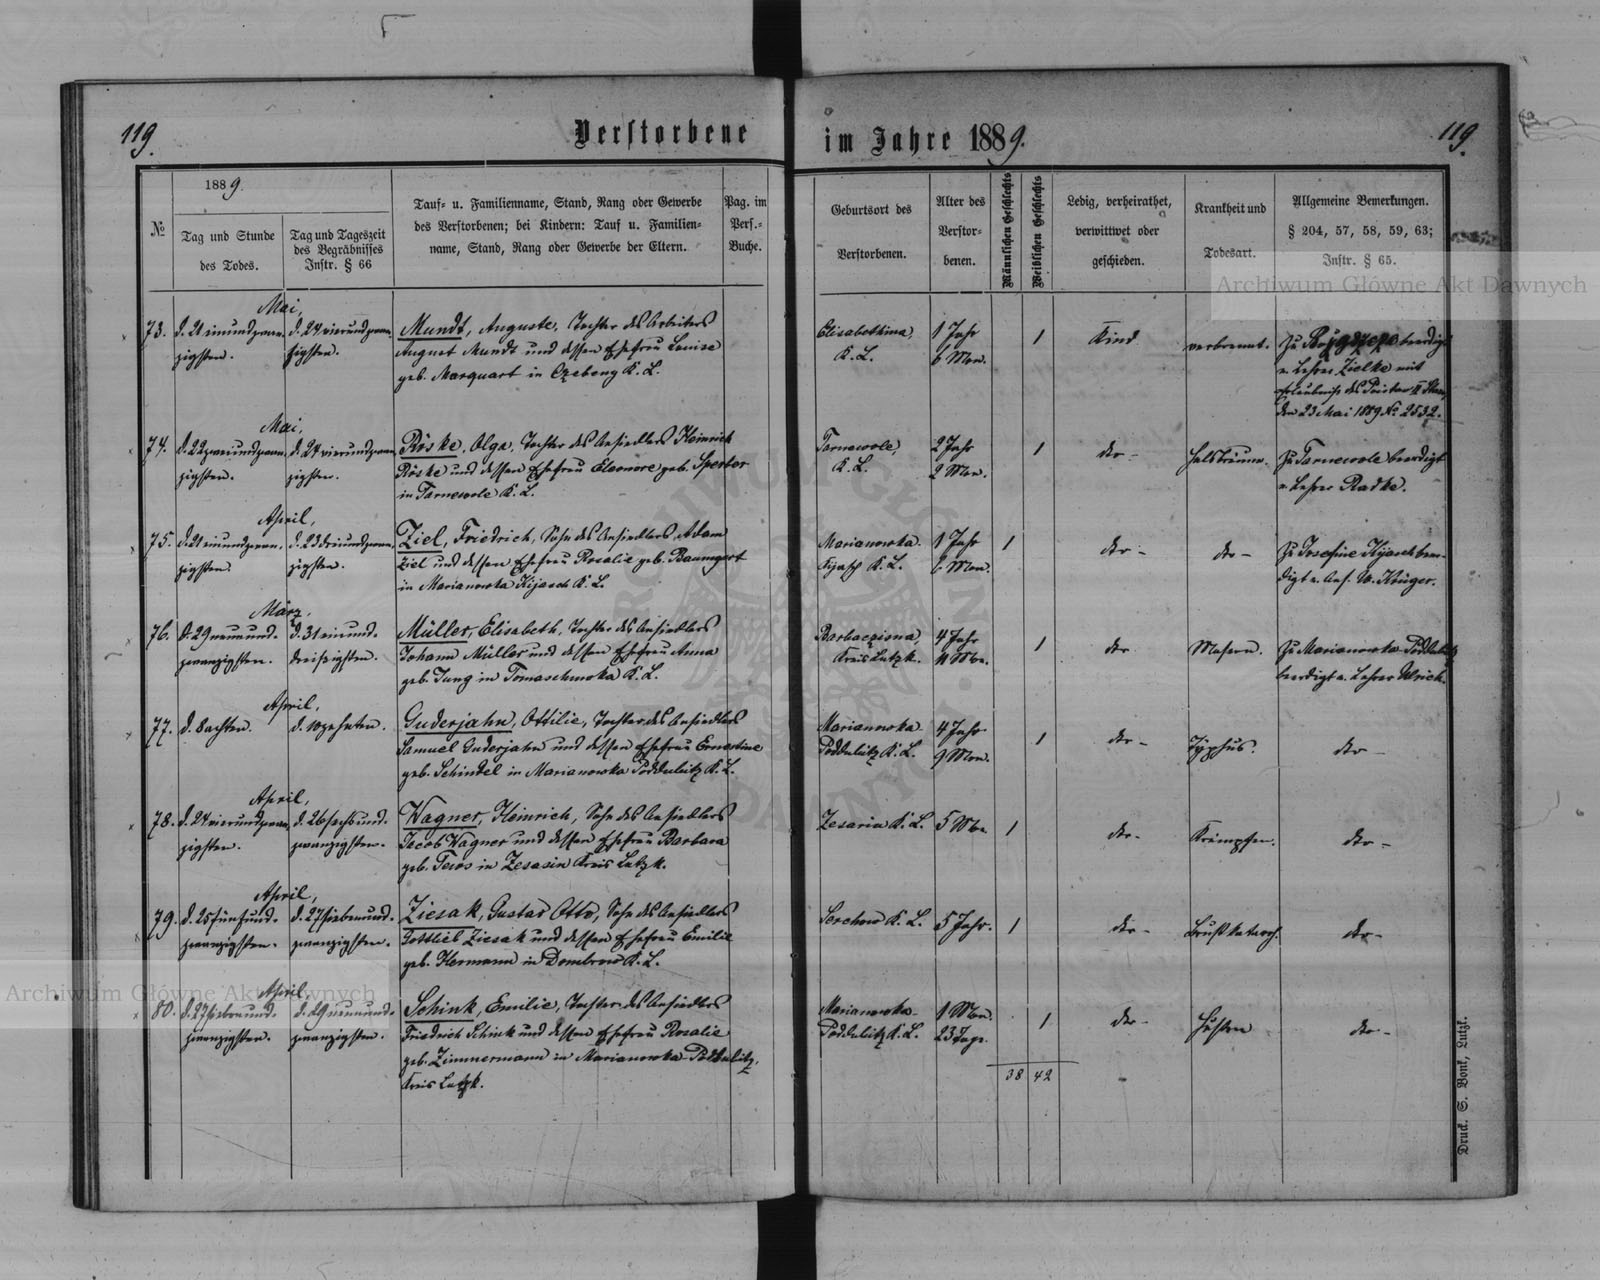 119.
Verstorbene
im Jahre 1889.
119.
№
1889.
Tag und Stunde
des Todes.
Tag und Tageszeit
des Begräbnisses
Instr. § 66
Tauf- u. Familienname, Stand, Rang oder Gewerbe
des Verstorbenen; bei Kindern: Tauf u. Familien-
name, Stand, Rang oder Gewerbe der Eltern.
Pag. im
Pers.-
Buche.
Geburtsort des
Verstorbenen.
Alter des
Verstor-
benen.
Männlichen Geschlechts
Weiblichen Geschlechts
Ledig, verheirathet,
verwittwet oder
geschieden.
Krankheit und
Todesart.
Allgemeine Bemerkungen.
§ 204, 57, 58, 59, 63;
Instr. § 65.
Archiwum Główne Akt Dawnych
Mai,
73. d. 21 einundzwan-
zigsten.
d. 24 vierundzwan-
zigsten.
Mundt, Auguste, Tochter des Arbeiters
August Mundt und dessen Ehefrau Louise
geb. Marquart in Czebeng K. L.
Elisabethina,
K. L.
1 Jahr
6 Mon.
1
Kind
verbrannt.
Zu beerdigt
v. Lehrer Zielke mit
Erlaubniss des
den 23 Mai 1889 № 2532.
Mai,
74. d. 22 zweiundzwan-
zigsten.
d. 24 vierundzwan-
zigsten.
Röske, Olga, Tochter des Ansiedlers Heinrich
Röske und dessen Ehefrau Eleonore geb. Spector
in Tarnewole K. L.
Tarnewole,
K. L.
2 Jahr
2 Mon.
1
dto -
Halsbräune.
Zu Tarnewole beerdigt
v. Lehrer Radke.
April,
75. d. 21 einundzwan-
zigsten.
d. 23 dreiundzwan-
zigsten.
Ziel, Friedrich, Sohn des Ansiedlers Adam
Ziel und dessen Ehefrau Rosalie geb. Baumgart
in Marianowka Kijasch K. L.
Marianowka
Kijasch K. L.
1 Jahr
6 Mon.
1
dto -
dto -
Zu Josefine Kijasch beer-
digt v. Ans. W. Krüger.
März,
76. d. 29 neunund-
zwanzigsten.
d. 31 einund-
dreissigsten.
Müller, Elisabeth, Tochter des Ansiedlers
Johann Müller und dessen Ehefrau Anna
geb. Jung in Tomaschewka K. L.
Barbaczisna
Kreis Lutzk.
4 Jahr
Mon.
1
dto
Masern.
Zu Marianowka Poddulutz
beerdigt v. Lehrer Ulrich.
April,
77. d. 8 achten.
d. 10 zehnten.
Guderjahn, Ottilie, Tochter des Ansiedlers
Samuel Guderjahn und dessen Ehefrau Ernestine
geb. Schindel in Marianowka Poddulutz K. L.
Marianowka
Poddulutz K. L.
4 Jahr
9 Mon.
1
dto -
Typhus.
dto -
April,
78. d. 24 vierundzwan-
zigsten.
d. 26 sechsund-
zwanzigsten.
Wagner, Heinrich, Sohn des Ansiedlers
Jacob Wagner und dessen Ehefrau Barbara
geb. in Zesarin Kreis Lutzk.
Zesarin K. L.
5 Mon.
1
dto -
Krämpfen.
dto -
April,
79. d. 25 fünfund-
zwanzigsten.
d. 27 siebenund-
zwanzigsten.
Ziesak, Gustav Otto, Sohn des Ansiedlers
Gottlieb Ziesak und dessen Ehefrau Emilie
geb. Hermann in Dombrowo K. L.
Serchow K. L.
5 Jahr.
1
dto -
Brustkatarrh.
dto -
Archiwum Główne Akt Dawnych
April,
80. d. 27 siebenund-
zwanzigsten.
d. 29 neunund-
zwanzigsten.
Schink, Emilie, Tochter des Ansiedlers
Friedrich Schink und dessen Ehefrau Rosalie
geb. Zimmermann in Marianowka Poddulutz,
Kreis Lutzk.
Marianowka
Poddulutz K. L.
1 Mon.
23 Tage.
1
dto -
Husten
dto -
38 42
Druck. S. Bonk, Lutzk.